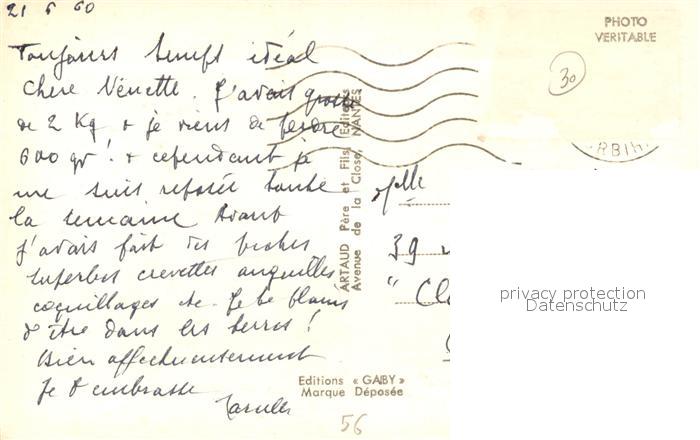 21 6 60
Toujours temps idéal
Chère Nénette. J'avais grossi
de 2 Kg & je viens de perdre
600 gr! & cependant je
me suis reposée toute
la semaine Avant
j'avais fait des pêches
superbes crevettes anguilles
coquillages etc. Je te plains
d'être dans les terres!
Bien affectueusement
Je t'embrasse
PHOTO
VERITABLE
30
RBIH
ARTAUD Père et Fils, Editeurs
Avenue de la Close, NANTES
Melle
39
" Cl
privacy protection
Datenschutz
Editions « GABY »
Marque Déposée
56